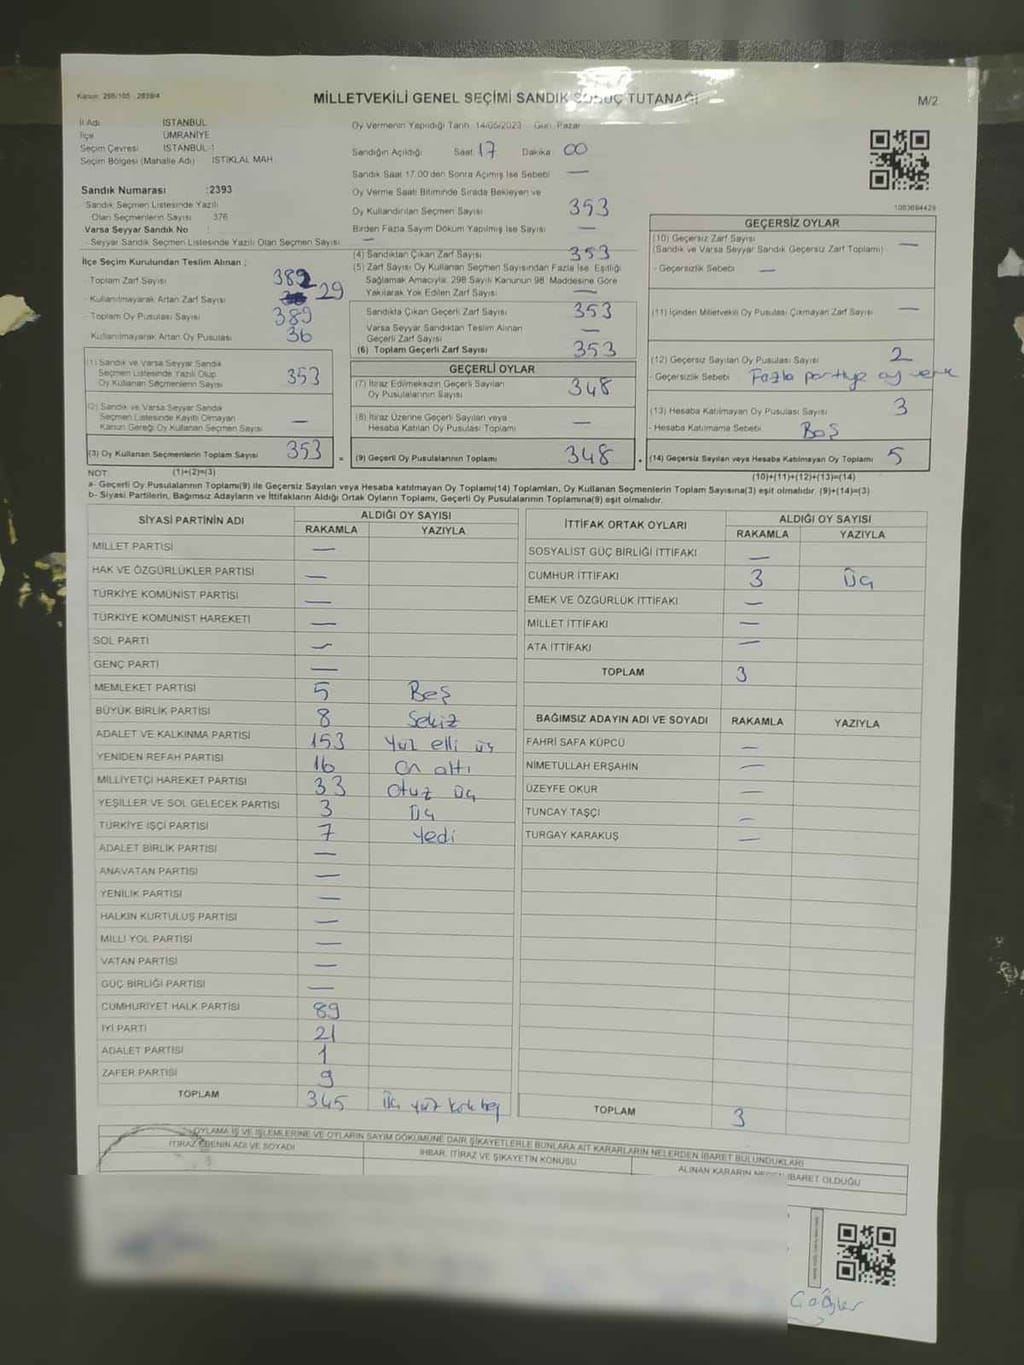 Kanun: 298/105 - 2839/4
MİLLETVEKİLİ GENEL SEÇİMİ SANDIK SONUÇ TUTANAĞI
M/2
İl Adı İSTANBUL
İlçe ÜMRANİYE
Seçim Çevresi İSTANBUL-1
Seçim Bölgesi (Mahalle Adı) İSTİKLAL MAH.
Sandık Numarası :2393
Sandık Seçmen Listesinde Yazılı
Olan Seçmenlerin Sayısı 376
Varsa Seyyar Sandık No :
- Seyyar Sandık Seçmen Listesinde Yazılı Olan Seçmen Sayısı —
İlçe Seçim Kurulundan Teslim Alınan :
- Toplam Zarf Sayısı 382
- Kullanılmayarak Artan Zarf Sayısı 29
- Toplam Oy Pusulası Sayısı 389
- Kullanılmayarak Artan Oy Pusulası 36
(1) Sandık ve Varsa Seyyar Sandık
Seçmen Listesinde Yazılı Olup
Oy Kullanan Seçmenlerin Sayısı 353
(2) Sandık ve Varsa Seyyar Sandık
Seçmen Listesinde Kayıtlı Olmayan
Kanun Gereği Oy Kullanan Seçmen Sayısı —
(3) Oy Kullanan Seçmenlerin Toplam Sayısı 353
Oy Vermenin Yapıldığı Tarih 14/05/2023 Gün: Pazar
Sandığın Açıldığı Saat 17 Dakika 00
Sandık Saat 17.00'den Sonra Açılmış İse Sebebi —
Oy Verme Saati Bitiminde Sırada Bekleyen ve
Oy Kullandırılan Seçmen Sayısı 353
Birden Fazla Sayım Döküm Yapılmış İse Sayısı —
(4) Sandıktan Çıkan Zarf Sayısı 353
(5) Zarf Sayısı Oy Kullanan Seçmen Sayısından Fazla İse, Eşitliği
Sağlamak Amacıyla, 298 Sayılı Kanunun 98. Maddesine Göre
Yakılarak Yok Edilen Zarf Sayısı —
Sandıkta Çıkan Geçerli Zarf Sayısı 353
Varsa Seyyar Sandıktan Teslim Alınan
Geçerli Zarf Sayısı —
(6) Toplam Geçerli Zarf Sayısı 353
GEÇERLİ OYLAR
(7) İtiraz Edilmeksizin Geçerli Sayılan
Oy Pusulalarının Sayısı 348
(8) İtiraz Üzerine Geçerli Sayılan veya
Hesaba Katılan Oy Pusulası Toplamı —
= (9) Geçerli Oy Pusulalarının Toplamı 348
1083684429
GEÇERSİZ OYLAR
(10) Geçersiz Zarf Sayısı
(Sandık ve Varsa Seyyar Sandık Geçersiz Zarf Toplamı) —
- Geçersizlik Sebebi —
(11) İçinden Milletvekili Oy Pusulası Çıkmayan Zarf Sayısı —
(12) Geçersiz Sayılan Oy Pusulası Sayısı 2
- Geçersizlik Sebebi Fazla partiye oy verme
(13) Hesaba Katılmayan Oy Pusulası Sayısı 3
- Hesaba Katılmama Sebebi Boş
(14) Geçersiz Sayılan veya Hesaba Katılmayan Oy Toplamı 5
NOT: (1)+(2)=(3) (10)+(11)+(12)+(13)=(14)
a- Geçerli Oy Pusulalarının Toplamı(9) ile Geçersiz Sayılan veya Hesaba katılmayan Oy Toplamı(14) Toplamları, Oy Kullanan Seçmenlerin Toplam Sayısına(3) eşit olmalıdır. (9)+(14)=(3)
b- Siyasi Partilerin, Bağımsız Adayların ve İttifakların Aldığı Ortak Oyların Toplamı, Geçerli Oy Pusulalarının Toplamına(9) eşit olmalıdır.
SİYASİ PARTİNİN ADI ALDIĞI OY SAYISI
RAKAMLA YAZIYLA
MİLLET PARTİSİ —
HAK VE ÖZGÜRLÜKLER PARTİSİ —
TÜRKİYE KOMÜNİST PARTİSİ —
TÜRKİYE KOMÜNİST HAREKETİ —
SOL PARTİ —
GENÇ PARTİ —
MEMLEKET PARTİSİ 5 Beş
BÜYÜK BİRLİK PARTİSİ 8 Sekiz
ADALET VE KALKINMA PARTİSİ 153 Yüz elli üç
YENİDEN REFAH PARTİSİ 16 On altı
MİLLİYETÇİ HAREKET PARTİSİ 33 Otuz üç
YEŞİLLER VE SOL GELECEK PARTİSİ 3 Üç
TÜRKİYE İŞÇİ PARTİSİ 7 Yedi
ADALET BİRLİK PARTİSİ —
ANAVATAN PARTİSİ —
YENİLİK PARTİSİ —
HALKIN KURTULUŞ PARTİSİ —
MİLLİ YOL PARTİSİ —
VATAN PARTİSİ —
GÜÇ BİRLİĞİ PARTİSİ —
CUMHURİYET HALK PARTİSİ 89
İYİ PARTİ 21
ADALET PARTİSİ 1
ZAFER PARTİSİ 9
TOPLAM 345 Üç yüz kırk beş
İTTİFAK ORTAK OYLARI ALDIĞI OY SAYISI
RAKAMLA YAZIYLA
SOSYALİST GÜÇ BİRLİĞİ İTTİFAKI —
CUMHUR İTTİFAKI 3 Üç
EMEK VE ÖZGÜRLÜK İTTİFAKI —
MİLLET İTTİFAKI —
ATA İTTİFAKI —
TOPLAM 3
BAĞIMSIZ ADAYIN ADI VE SOYADI RAKAMLA YAZIYLA
FAHRİ SAFA KÜPCÜ —
NİMETULLAH ERŞAHİN —
ÜZEYFE OKUR —
TUNCAY TAŞÇI —
TURGAY KARAKUŞ —
TOPLAM 3
OYLAMA İŞ VE İŞLEMLERİNE VE OYLARIN SAYIM DÖKÜMÜNE DAİR ŞİKAYETLERLE BUNLARA AİT KARARLARIN NELERDEN İBARET BULUNDUKLARI
İTİRAZ EDENİN ADI VE SOYADI İHBAR, İTİRAZ VE ŞİKAYETİN KONUSU ALINAN KARARIN NEDEN İBARET OLDUĞU